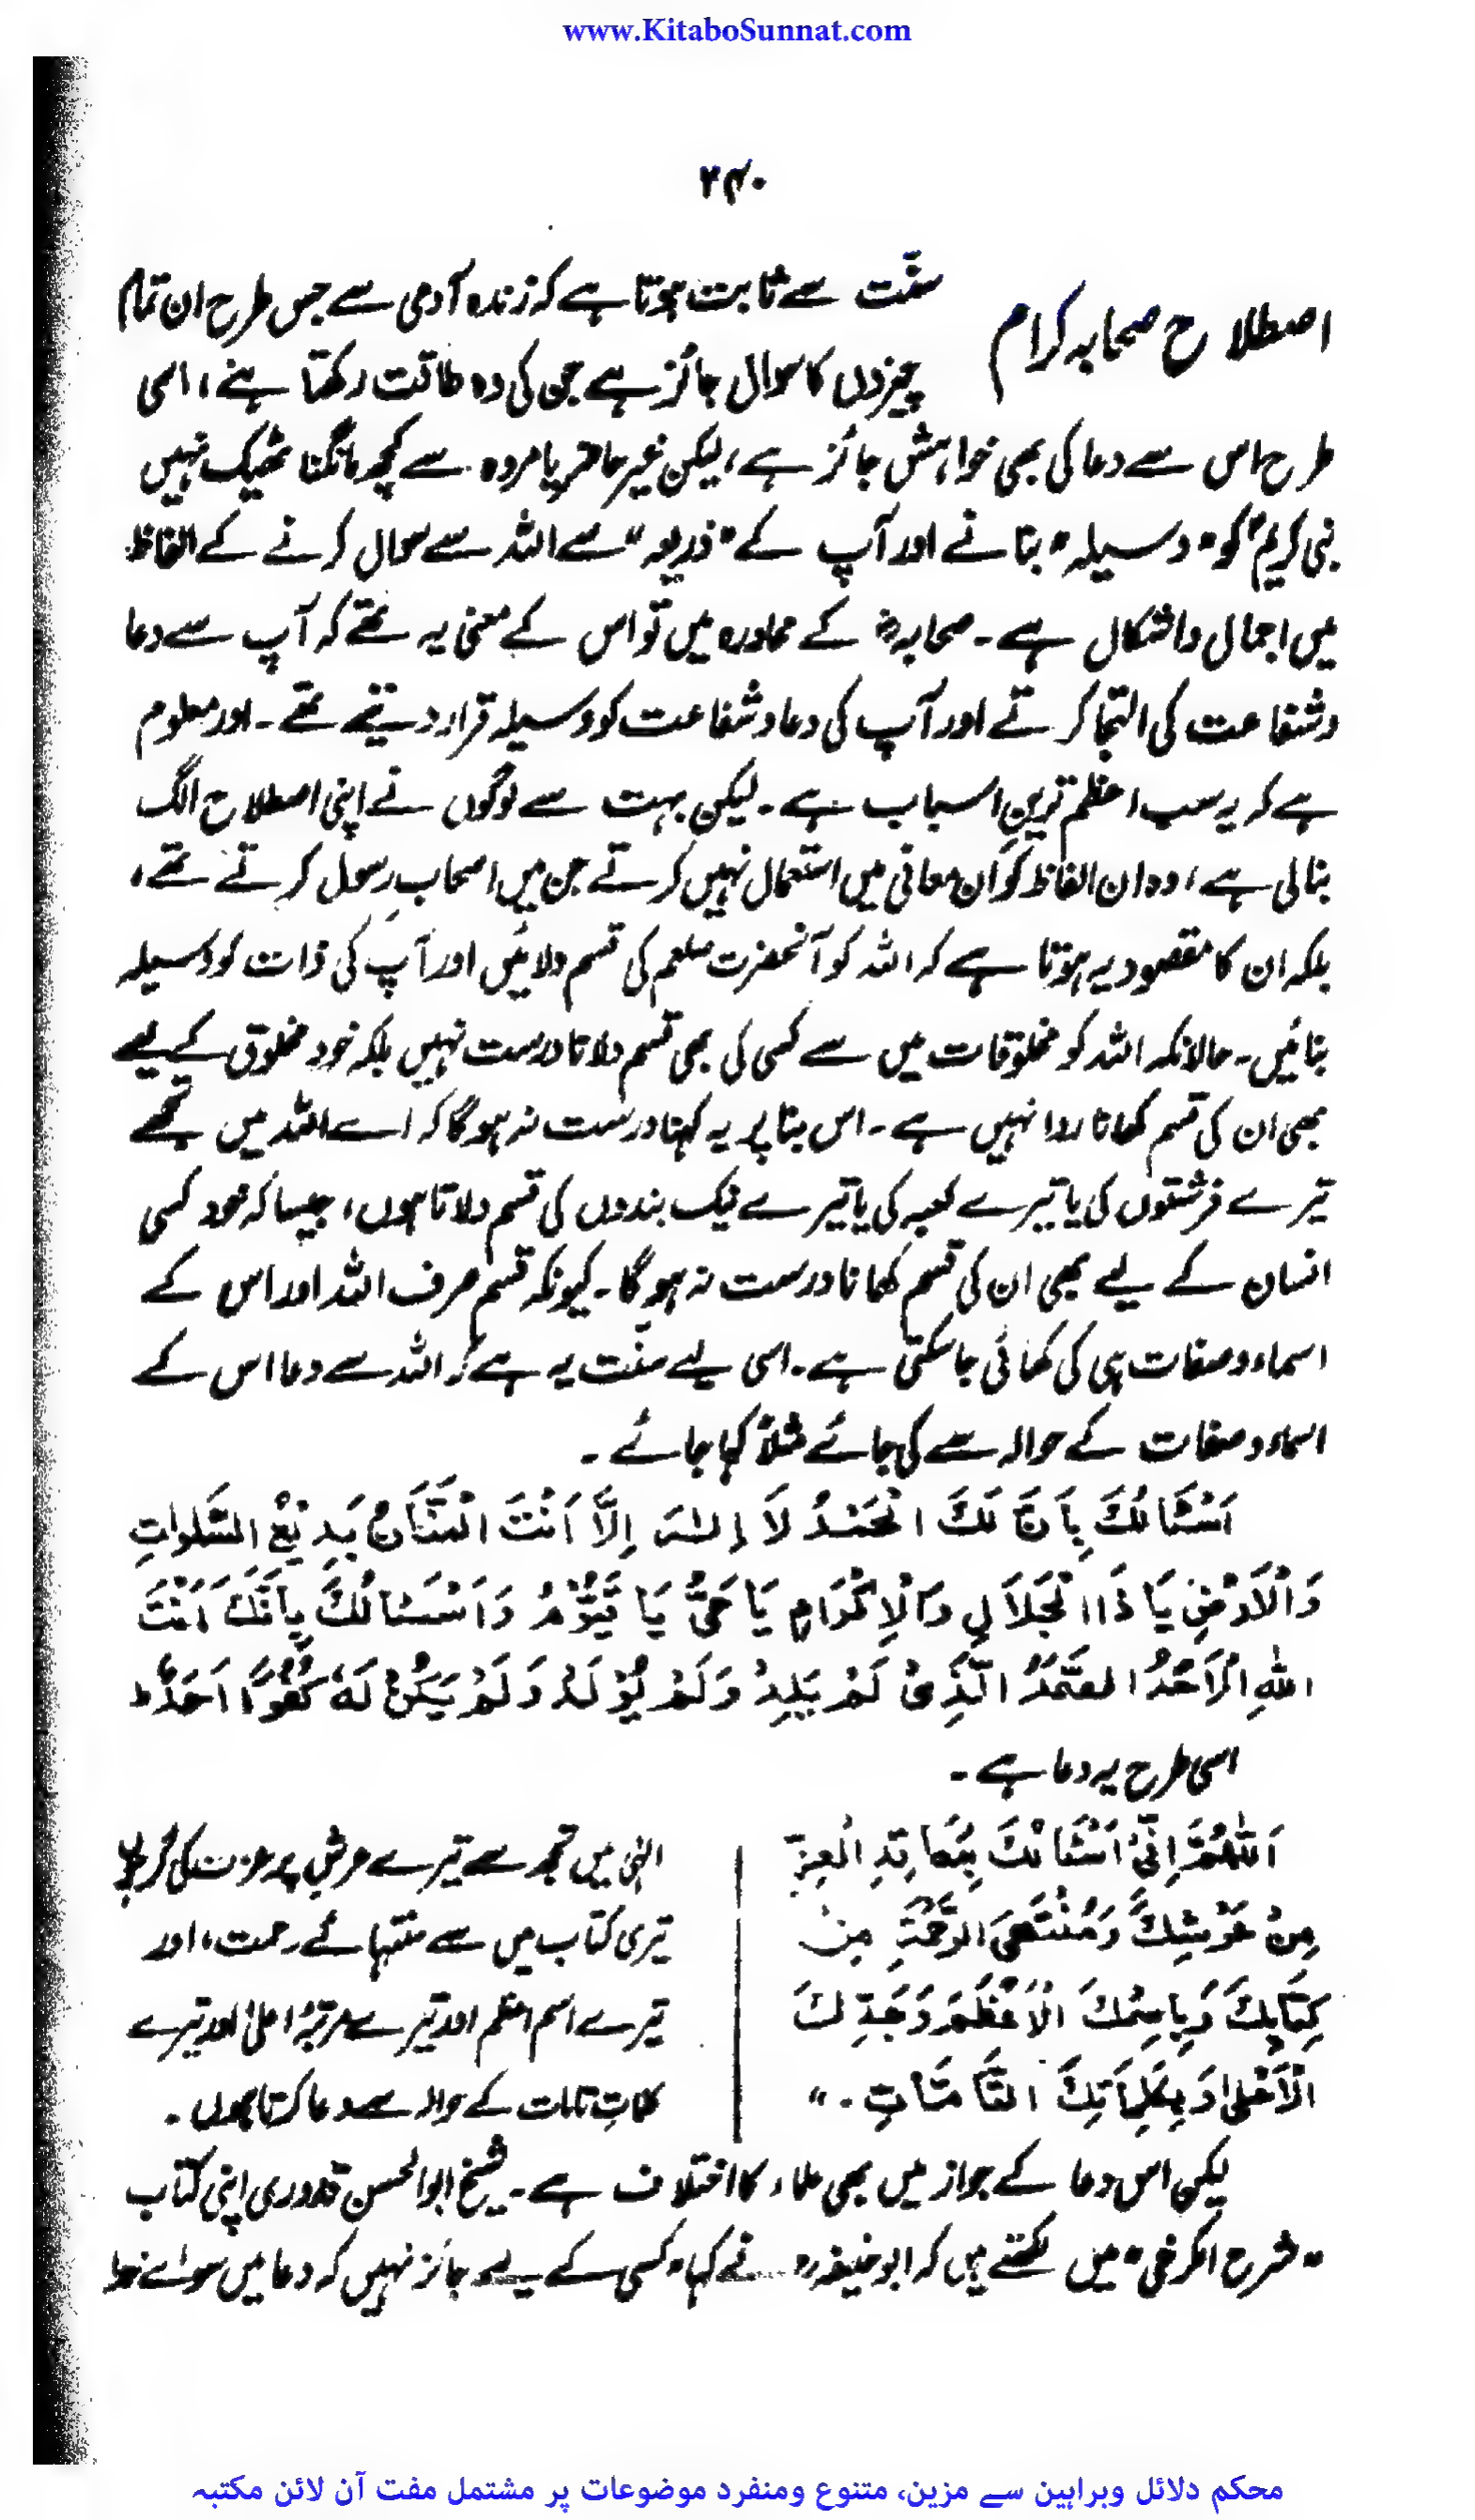 www.KitaboSunnat.com
۲۴۰
اصطلاح صحابہ کرام
سنّت سے ثابت ہوتا ہے کہ زندہ آدمی سے جس طرح ان تمام
چیزوں کا سوال جائز ہے جن کی وہ طاقت رکھتا ہے، اسی
طرح اس سے دعا کی بھی خواہش جائز ہے، لیکن غیر حاضر یا مردہ سے کچھ مانگنا ٹھیک نہیں
نبی کریمؐ کو "وسیلہ" بنانے اور آپ کے "ذریعہ" سے اللہ سے سوال کرنے کے الفاظ
میں اجمال و اشکال ہے۔ صحابہؓ کے محاورہ میں تو اس کے معنی یہ تھے کہ آپ سے دعا
و شفاعت کی التجا کرتے اور آپ کی دعا و شفاعت کو وسیلہ قرار دیتے تھے۔ اور معلوم
ہے کہ یہ سب اعظم ترین اسباب ہے۔ لیکن بہت سے لوگوں نے اپنی اصطلاح الگ
بنالی ہے، وہ ان الفاظ کو ان معانی میں استعمال نہیں کرتے جن میں اصحابِ رسول کرتے تھے،
بلکہ ان کا مقصود یہ ہوتا ہے کہ اللہ کو آنحضرت صلعم کی قسم دلائیں اور آپ کی ذات کو وسیلہ
بنائیں۔ حالانکہ اللہ کو مخلوقات میں سے کسی کی بھی قسم دلانا درست نہیں بلکہ خود مخلوق کے لیے
بھی ان کی قسم کھانا روا نہیں ہے۔ اس بنا پر یہ کہنا درست نہ ہوگا کہ اے اللہ میں تجھے
تیرے فرشتوں کی یا تیرے کعبہ کی یا تیرے نیک بندوں کی قسم دلاتا ہوں، جیسا کہ خود کسی
انسان کے لیے بھی ان کی قسم کھانا درست نہ ہوگا۔ کیونکہ قسم صرف اللہ اور اس کے
اسماء و صفات ہی کی کھائی جاسکتی ہے۔ اسی لیے سنّت یہ ہے کہ اللہ سے دعا اس کے
اسماء و صفات کے حوالہ سے کی جائے مثلاً کہا جائے۔
اَسْئَالُكَ بِاَنَّ لَكَ الْحَمْدُ لَا اِلٰهَ اِلَّا اَنْتَ الْمَنَّانُ بَدِيْعُ السَّمٰوَاتِ
وَالْاَرْضِ يَا ذَا الْجَلَالِ وَالْاِكْرَامِ يَا حَيُّ يَا قَيُّوْمُ وَاَسْئَالُكَ بِاَنَّكَ اَنْتَ
اللهِ الْاَحَدُ الصَّمَدُ الَّذِىْ لَمْ يَلِدْ وَلَمْ يُوْلَدْ وَلَمْ يَكُنْ لَهٗ كُفُوًا اَحَدٌ ط
اسی طرح یہ دعا ہے۔
اَللّٰهُمَّ اِنِّىْ اَسْئَالُكَ بِمَعَاقِدِ الْعِزِّ
مِنْ عَرْشِكَ وَمُنْتَهَى الرَّحْمَةِ مِنْ
كِتَابِكَ وَبِاسْمِكَ الْاَعْظَمَ وَجَدِّكَ
الْاَعْلٰى وَبِكَلِمَاتِكَ التَّامَّاتِ۔"
الٰہی میں تجھ سے تیرے عرش پر عزت کی
تیری کتاب میں سے منتہائے رحمت، اور
تیرے اسم اعظم اور تیرے مرتبۂ اعلیٰ اور تیرے
کلماتِ تامات کے حوالہ سے دعا کرتا ہوں۔
لیکن اس دعا کے جواز میں بھی علماء کا اختلاف ہے۔ شیخ ابوالحسن قدوری اپنی کتاب
"شرح الکرخی" میں لکھتے ہیں کہ ابوحنیفہؒ نے کہا "کسی کے لیے جائز نہیں کہ دعا میں سوائے خدا
محکم دلائل وبراہین سے مزین، متنوع ومنفرد موضوعات پر مشتمل مفت آن لائن مکتبہ